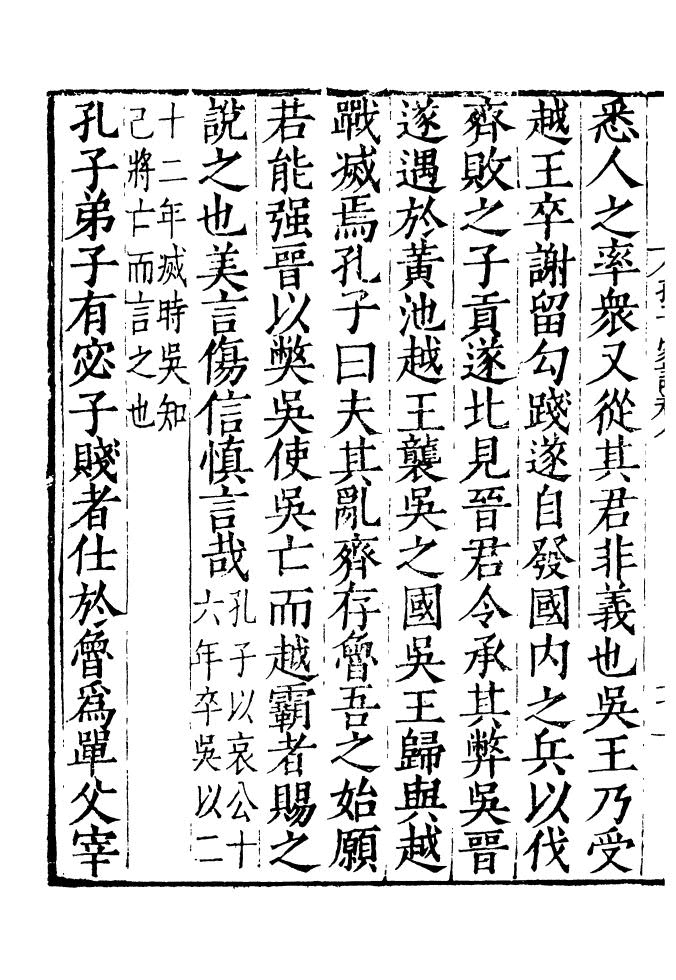 悉人之率衆又從其君非義也吳王乃受
越王卒謝留勾踐遂自發國内之兵以伐
齊敗之子貢遂北見晉君令承其弊吳晉
遂遇於黃池越王襲吳之國吳王歸與越
戰滅焉孔子曰夫其亂齊存魯吾之始願
若能强晉以弊吳使吳亡而越霸者賜之
說之也美言傷信慎言哉孔子以哀公十六年卒吳以二
十二年滅時吳知己將亡而言之也
孔子弟子有宓子賤者仕於魯爲單父宰